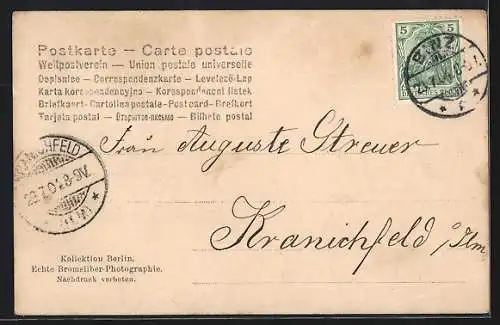 Postkarte – Carte postale
Weltpostverein — Union postale universelle
Dopisnice — Correspondenzkarte — Levelező-Lap
Karta korespondencyjna — Korespondenční listek
Briefkaart - Cartolina postale - Postcard - Brefkort
Tarjeta postal — Открытое письмо — Bilhete postal
5 5
KRANICHFELD
8-9V.
(ILM)
Fräulein Auguste Streuer
Kranichfeld a/Ilm
Kollektion Berlin.
Echte Bromsilber-Photographie.
Nachdruck verboten.